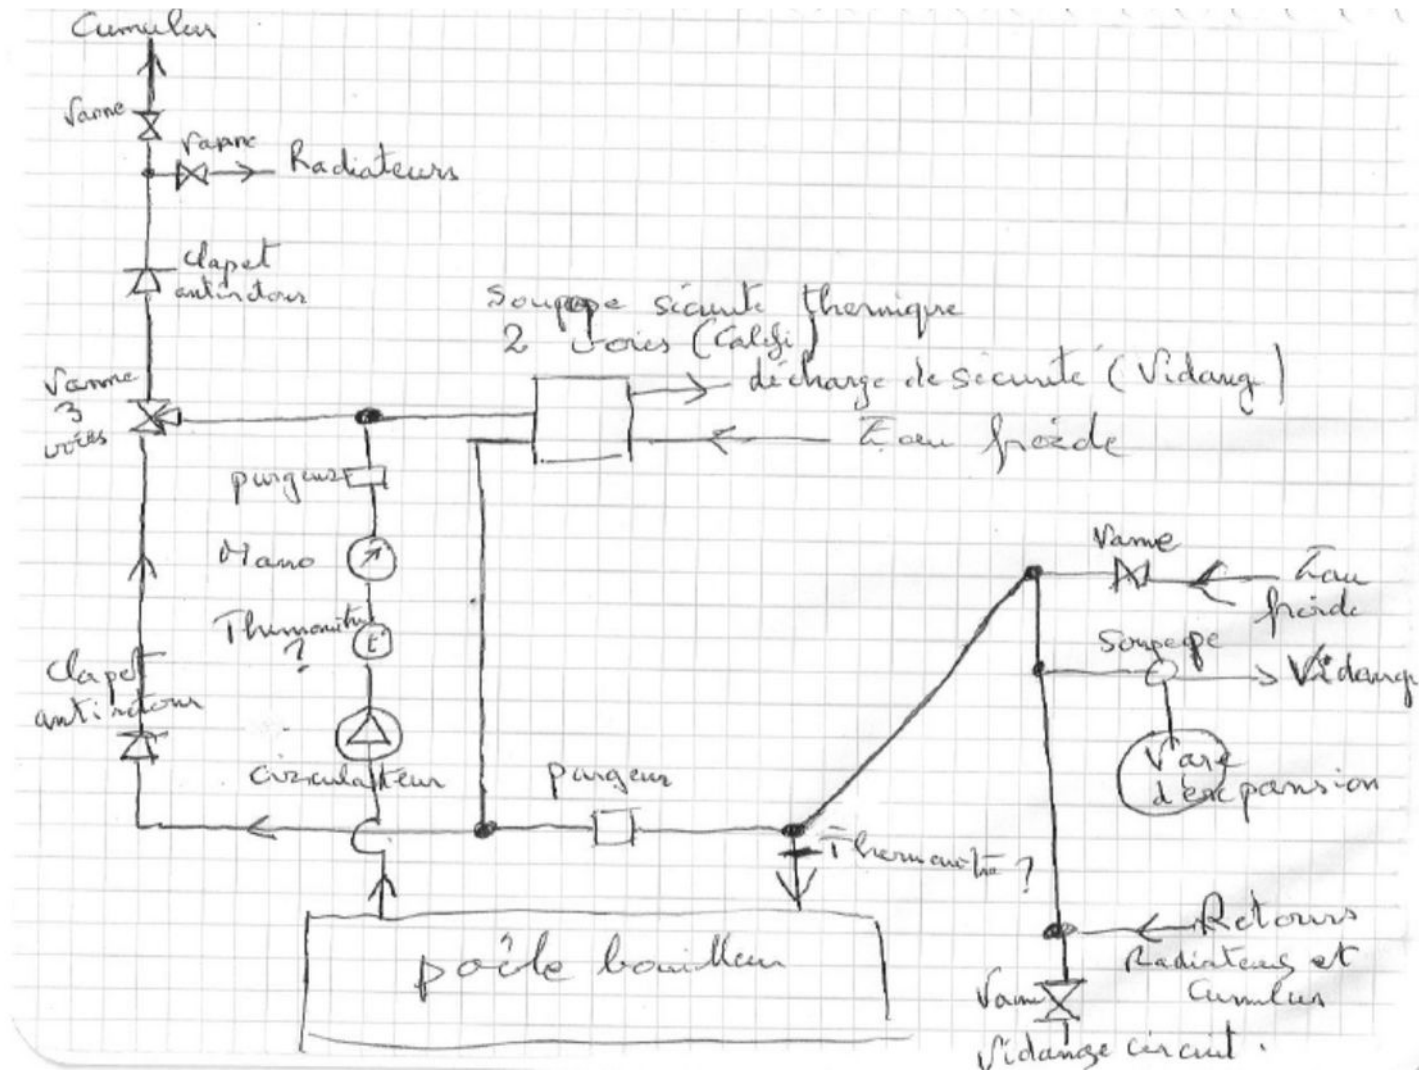 Cumulus
Vanne
Vanne
Radiateurs
Clapet
antiretour
Soupape sécurité thermique
2 voies (Calefi)
décharge de sécurité (Vidange)
Eau froide
Vanne
3
voies
purgeur
Mano
Thermomètre
?
t
Clapet
antiretour
circulateur
purgeur
Vanne
Eau
froide
Soupape
Vidange
Vase
d'expansion
Thermomètre ?
Retours
Radiateurs et
Cumulus
poêle bouilleur
Vanne
Vidange circuit.